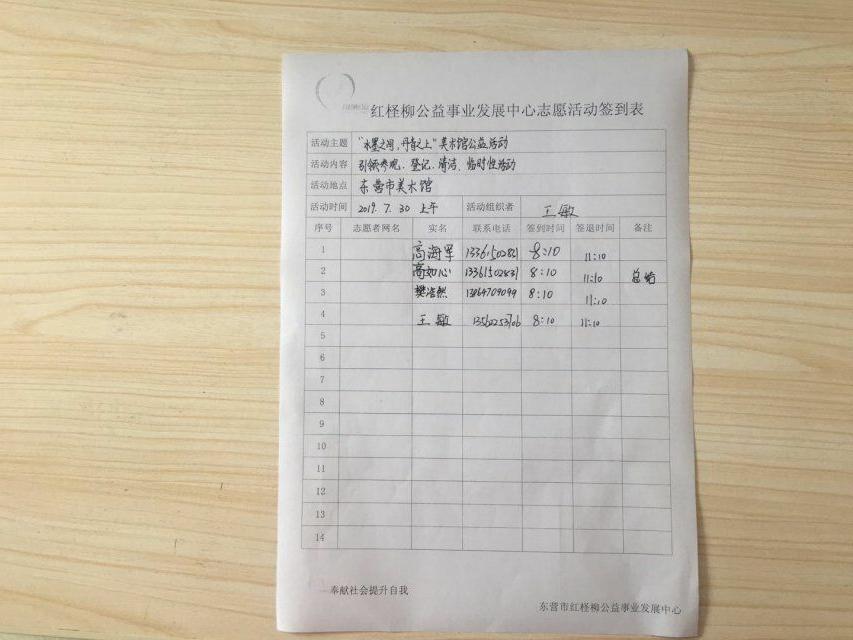 红柽柳公益事业发展中心志愿活动签到表
活动主题 "水墨之间,丹青之上"美术馆公益活动
活动内容 引领参观、登记、清洁、临时性活动
活动地点 东营市美术馆
活动时间 2019.7.30 上午 活动组织者 王敏
序号 志愿者网名 实名 联系电话 签到时间 签退时间 备注
1 高海军 8:10 11:10
2 高如心 13361502831 8:10 11:10 总结
3 樊浩然 8:10 11:10
4 王敏 8:10 11:10
5
6
7
8
9
10
11
12
13
14
奉献社会提升自我
东营市红柽柳公益事业发展中心